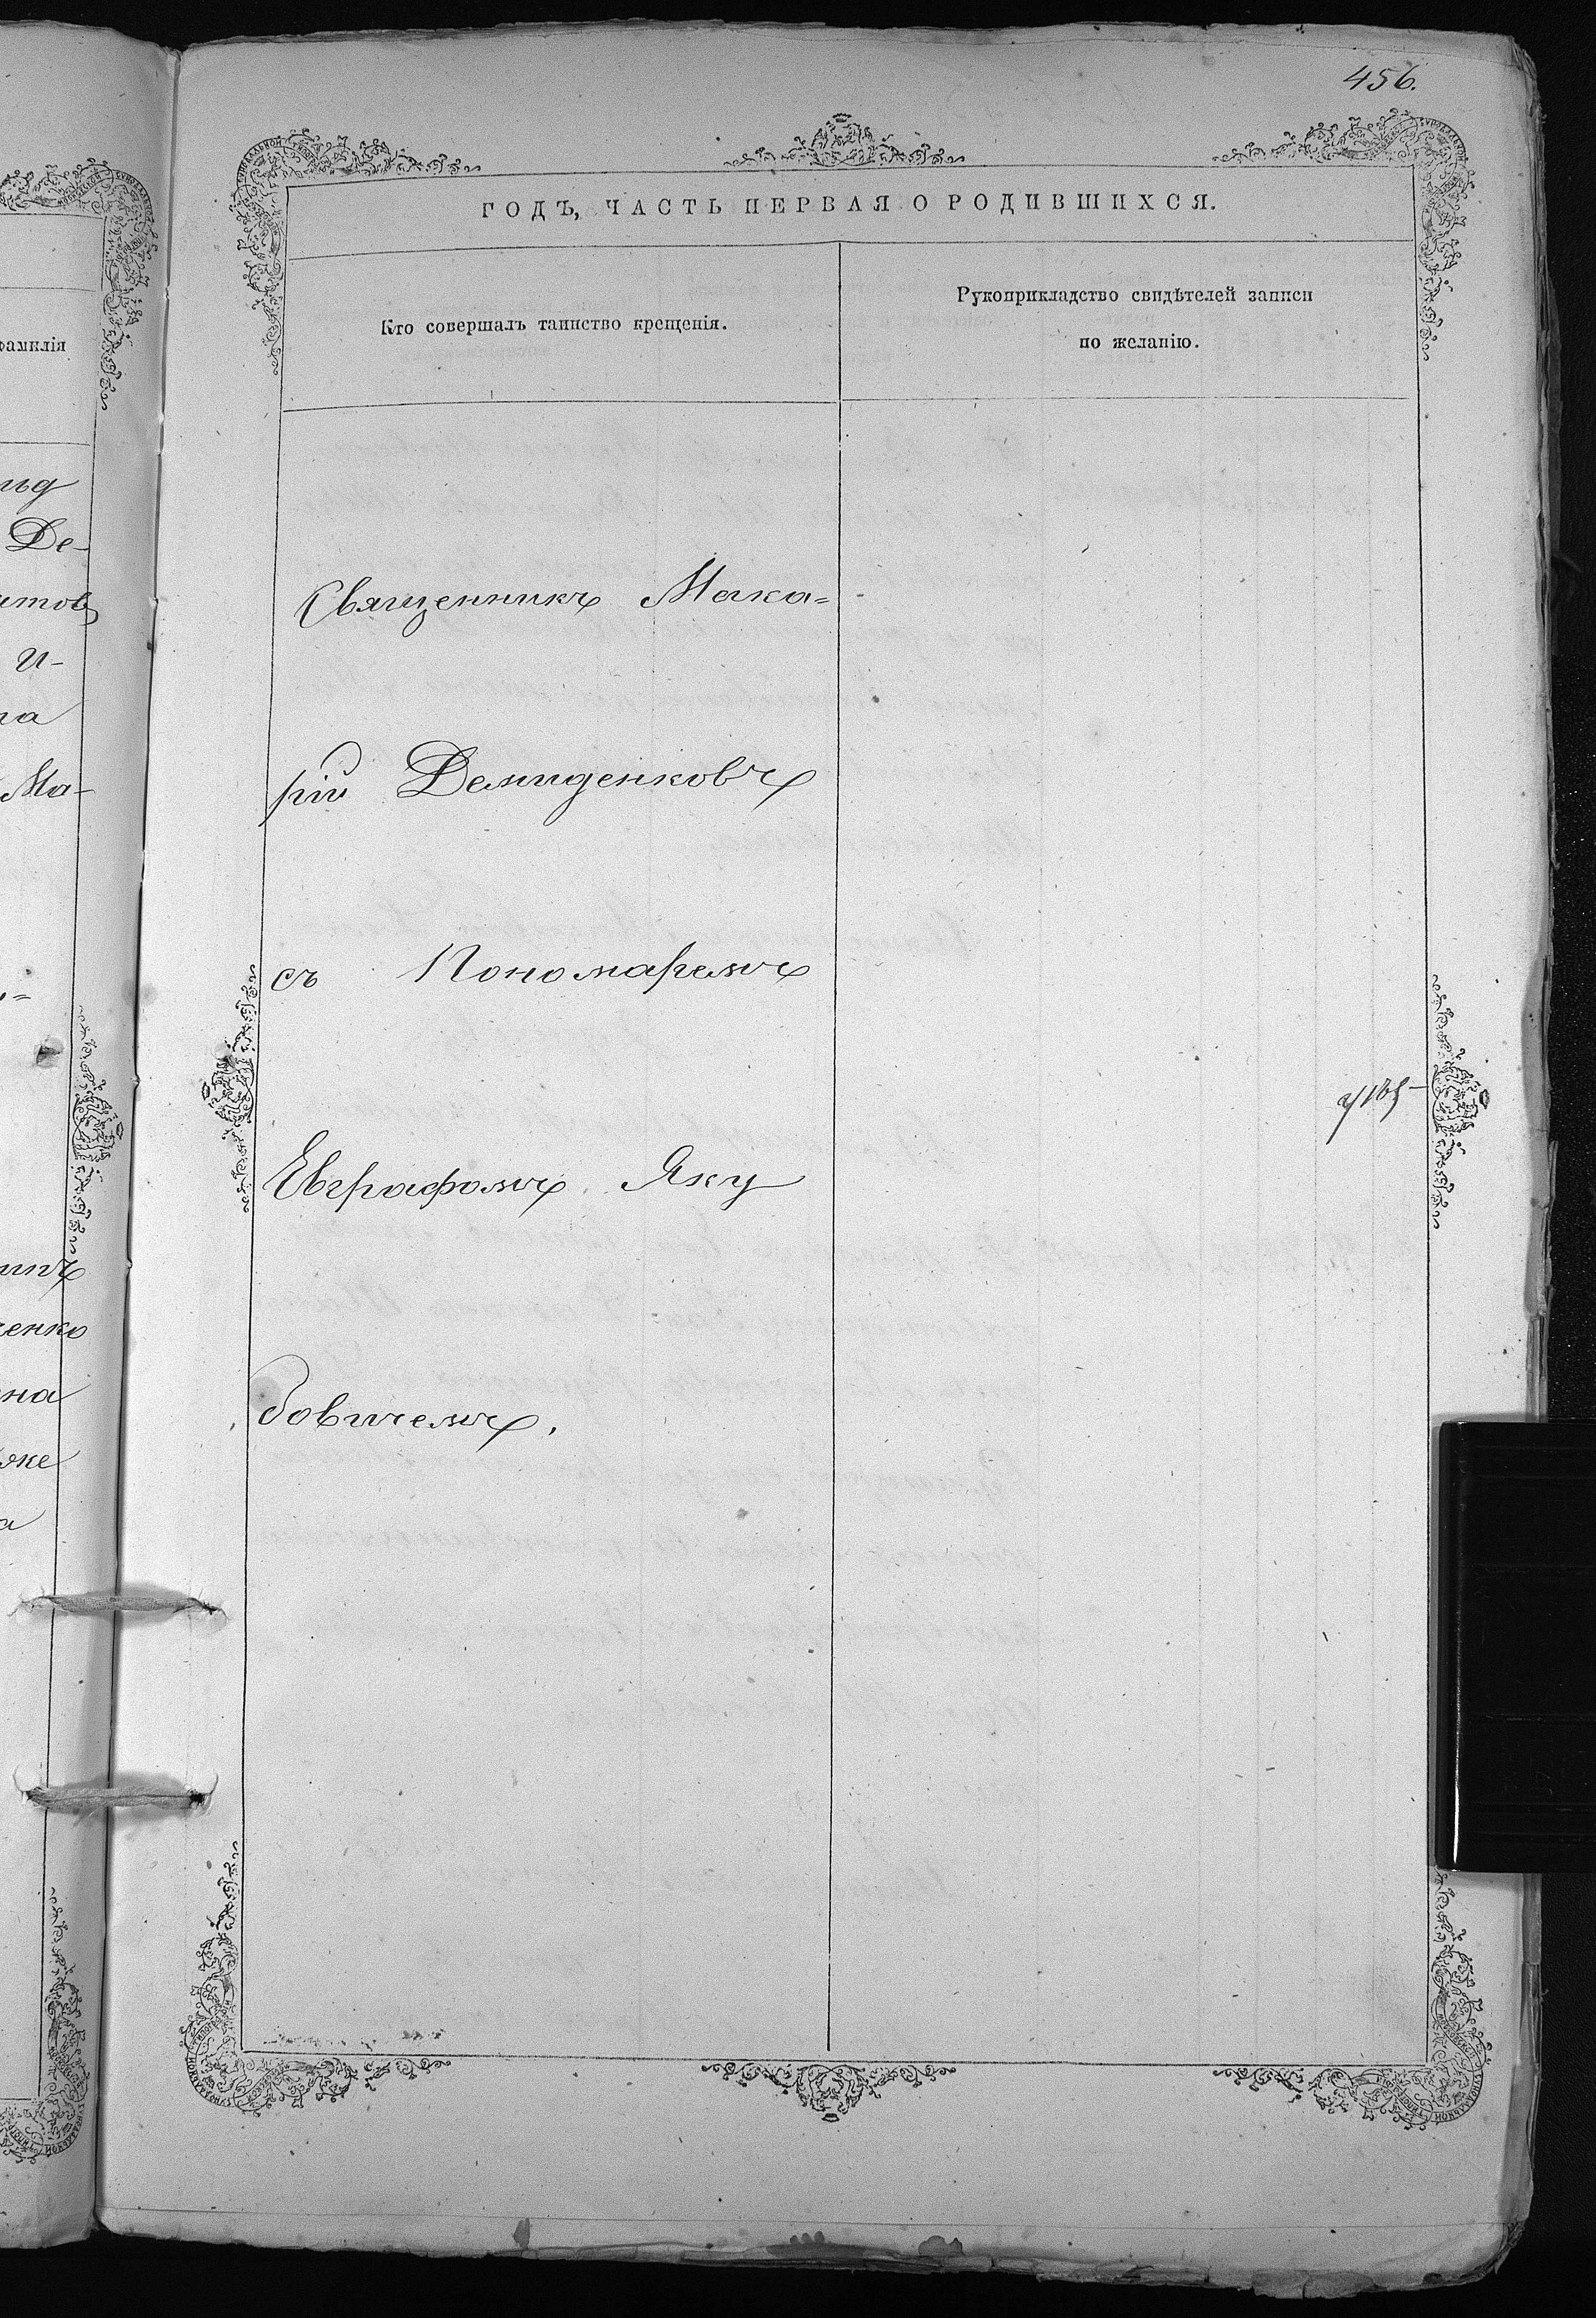 456.
ГОДЪ, ЧАСТЬ ПЕРВАЯ О РОДИВШИХСЯ.
Кто совершалъ таинство крещенія.
Рукоприкладство свидѣтелей записи
по желанію.
Священникъ Мака=
рій Демиденковъ
съ Пономаремъ
Евграфомъ Яку
бовичемъ.
фамилія
Де-
и-
Ма-
енко
на
же
а